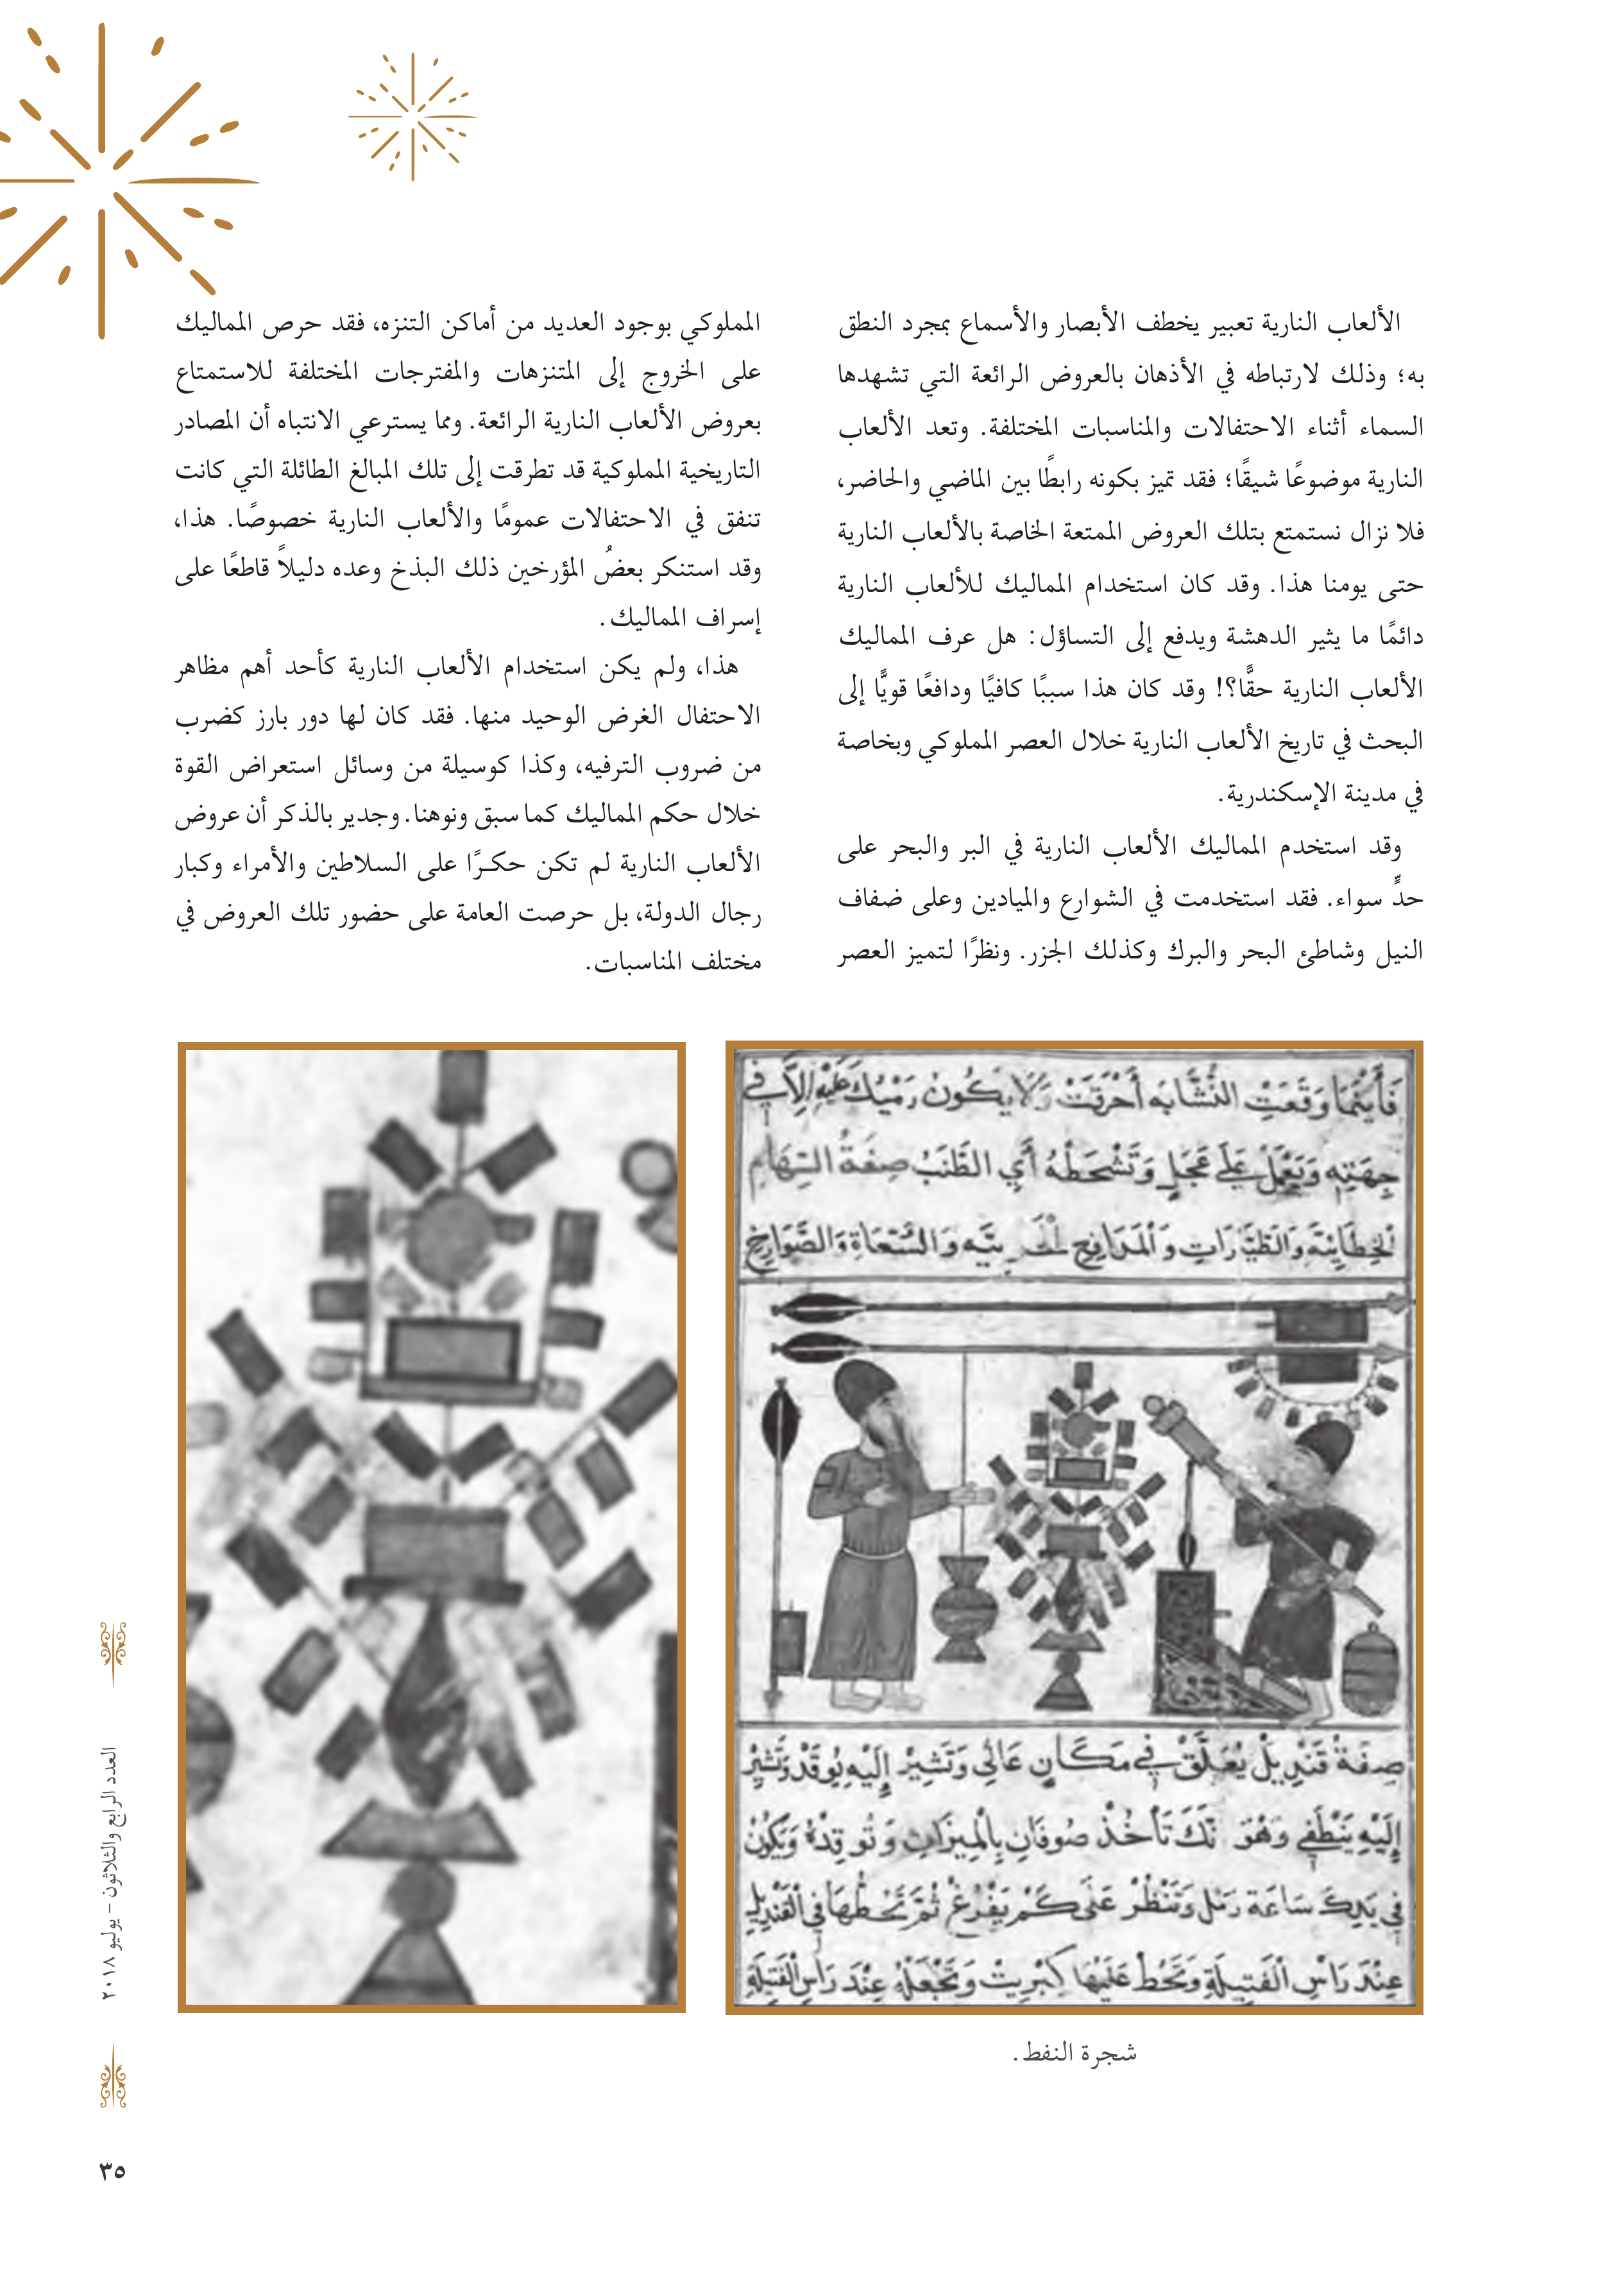 الألعاب النارية تعبير يخطف الأبصار والأسماع بمجرد النطق
به؛ وذلك لارتباطه في الأذهان بالعروض الرائعة التي تشهدها
السماء أثناء الاحتفالات والمناسبات المختلفة. وتعد الألعاب
النارية موضوعًا شيقًا؛ فقد تميز بكونه رابطًا بين الماضي والحاضر،
فلا نزال نستمتع بتلك العروض الممتعة الخاصة بالألعاب النارية
حتى يومنا هذا. وقد كان استخدام المماليك للألعاب النارية
دائمًا ما يثير الدهشة ويدفع إلى التساؤل: هل عرف المماليك
الألعاب النارية حقًّا؟! وقد كان هذا سببًا كافيًا ودافعًا قويًّا إلى
البحث في تاريخ الألعاب النارية خلال العصر المملوكي وبخاصة
في مدينة الإسكندرية.
وقد استخدم المماليك الألعاب النارية في البر والبحر على
حدٍّ سواء. فقد استخدمت في الشوارع والميادين وعلى ضفاف
النيل وشاطئ البحر والبرك وكذلك الجزر. ونظرًا لتميز العصر
المملوكي بوجود العديد من أماكن التنزه، فقد حرص المماليك
على الخروج إلى المتنزهات والمفترجات المختلفة للاستمتاع
بعروض الألعاب النارية الرائعة. ومما يسترعي الانتباه أن المصادر
التاريخية المملوكية قد تطرقت إلى تلك المبالغ الطائلة التي كانت
تنفق في الاحتفالات عمومًا والألعاب النارية خصوصًا. هذا،
وقد استنكر بعضُ المؤرخين ذلك البذخ وعده دليلاً قاطعًا على
إسراف المماليك.
هذا، ولم يكن استخدام الألعاب النارية كأحد أهم مظاهر
الاحتفال الغرض الوحيد منها. فقد كان لها دور بارز كضرب
من ضروب الترفيه، وكذا كوسيلة من وسائل استعراض القوة
خلال حكم المماليك كما سبق ونوهنا. وجدير بالذكر أن عروض
الألعاب النارية لم تكن حكـرًا على السلاطين والأمراء وكبار
رجال الدولة، بل حرصت العامة على حضور تلك العروض في
مختلف المناسبات.
فَأَيْنَمَا وَقَعَتِ النُّشَّابَه أَحْرَقَتْ وَلَا يَكُونْ رَمْيُكَ عَلَيْهِ إِلاَّ فِي
جِهَتِهِ وَيَعْمَلْ عَلَى عَجَلٍ وَتَشْحَطْهُ أَيِ الطُّنْبُ صِفَةُ السِّهَامِ
الْخِطَائِيَّةِ وَالطَّيَّارَاتِ وَالْمَدَافِعِ وَالصَّوَارِيخِ
صِفَةُ قَنْدِيلْ يُعَلَّقْ فِي مَكَانٍ عَالِي وَتَشِيرْ إِلَيْهِ يُوقَدْ وَتَشِيرْ
إِلَيْهِ يَنْطَفِي وَهُوَ تَأْخُذْ صُوفَانِ بِالْمِيزَانِ وَتُوقِدْهُ وَيَكُونُ
فِي يَدِكَ سَاعَة رَمْل وَتَنْظُرْ عَلَى كَمْ يَفْرُغْ ثُمَّ تَحُطُّهَا فِي الْقَنْدِيلِ
عِنْدَ رَاسِ الْفَتِيلَةِ وَتَحُطْ عَلَيْهَا كِبْرِيتْ وَتَجْعَلْهُ عِنْدَ رَاسِ الْفَتِيلَةِ
شجرة النفط.
العدد الرابع والثلاثون – يوليو ٢٠١٨
٣٥